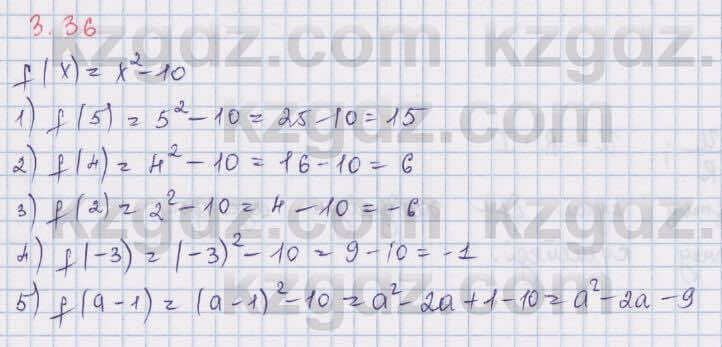 3.36
f(x) = x² - 10
1) f(5) = 5² - 10 = 25 - 10 = 15
2) f(4) = 4² - 10 = 16 - 10 = 6
3) f(2) = 2² - 10 = 4 - 10 = -6
4) f(-3) = (-3)² - 10 = 9 - 10 = -1
5) f(a - 1) = (a - 1)² - 10 = a² - 2a + 1 - 10 = a² - 2a - 9
kzgdz.com
kzgdz.com
kzgdz.com
kzgdz.com